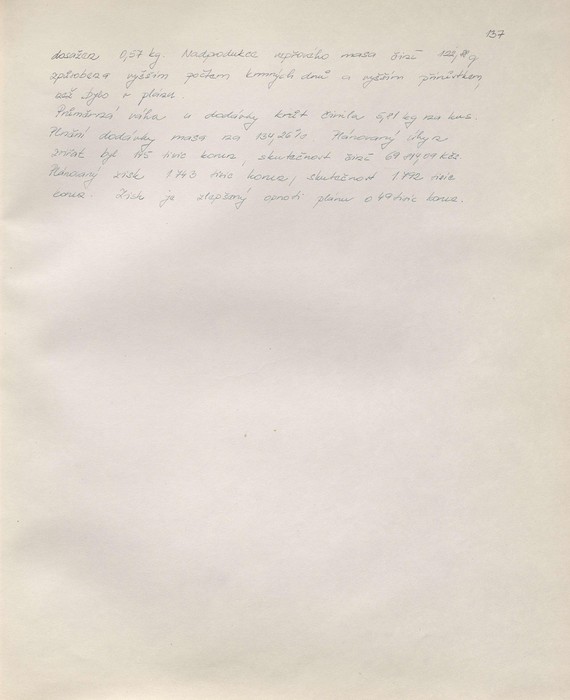 137
dosažen 0,57 kg. Nadprodukce vepřového masa činí 122,18 q
způsobena vyšším počtem krmných dnů a vyšším přírůstkem,
než bylo v plánu.
Průměrná váha u dodávky krůt činila 5,81 kg na kus.
Plnění dodávky masa na 134,26%. Plánovaný úhyn
zvířat byl tisíc korun, skutečnost činí Kčs.
Plánovaný zisk 1.743 tisíc korun, skutečnost 1.792 tisíc
korun. Zisk je zlepšený oproti plánu o 49 tisíc korun.